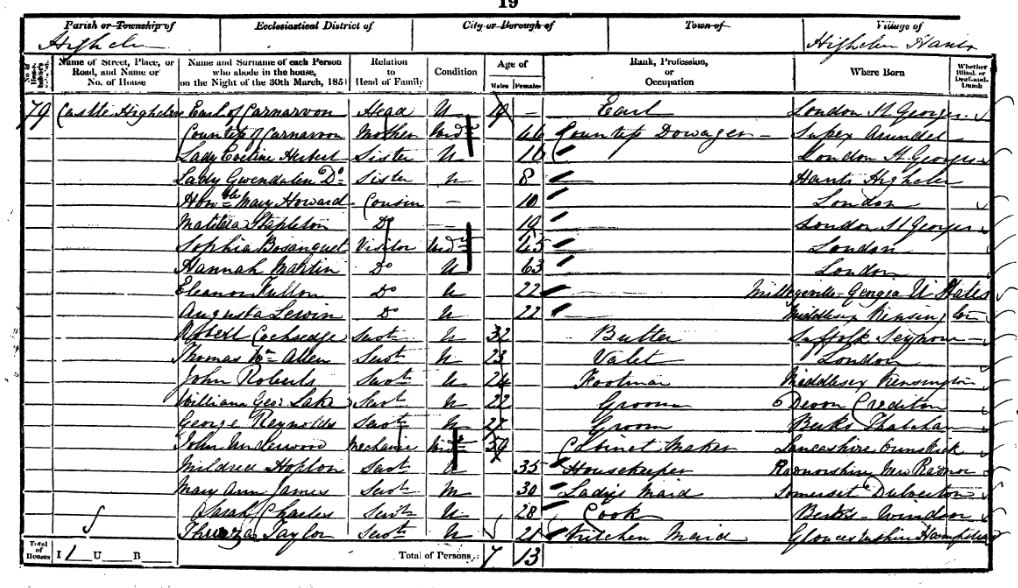 19
Parish or Township of Ecclesiastical District of City or Borough of Town of Village of
Highclere Highclere Hants
Name of Street, Place, or Road, and Name or No. of House Name and Surname of each Person who abode in the house, on the Night of the 30th March, 1851 Relation to Head of Family Condition Age of Males Females Rank, Profession, or Occupation Where Born Whether Blind, or Deaf-and-Dumb
79 Castle Highclere Earl of Carnarvon Head U 19 – Earl London St Georges
Countess of Carnarvon Mother Widr 46 Countess Dowager Sussex Arundel
Lady Eveline Herbert Sister U 16 London St Georges
Lady Gwendolen Do Sister U 8 Hants Highclere
Honble Mary Howard Cousin – 10 London
Matilda Stapleton Do – 19 London St Georges
Sophia Bosanquet Visitor Widr 45 London
Hannah Martin Do U 63 London
Eleanor Fulton Do U 22 Milledgeville Georgia U States
Augusta Lewin Do U 22 Middlesex Kensington
Robert Cocksedge Servt U 32 Butler Suffolk
Thomas Wm Allen Servt U 23 Valet London
John Roberts Servt U 24 Footman Middlesex Kensington
William Geo Lake Servt U 22 Groom Devon Crediton
George Reynolds Servt U 27 Groom Berks Thatcham
John Underwood Mechanic 59 Cabinet Maker Lancashire
Mildred Hopton Servt U 35 Housekeeper Radnorshire New Radnor
Mary Ann James Servt M 30 Ladys Maid Somerset Dulverton
Sarah Charles Servt U 28 Cook Berks Windsor
Thirza Taylor Servt U 21 Kitchen Maid Gloucestershire
Total of Houses I 1 U B Total of Persons 7 13